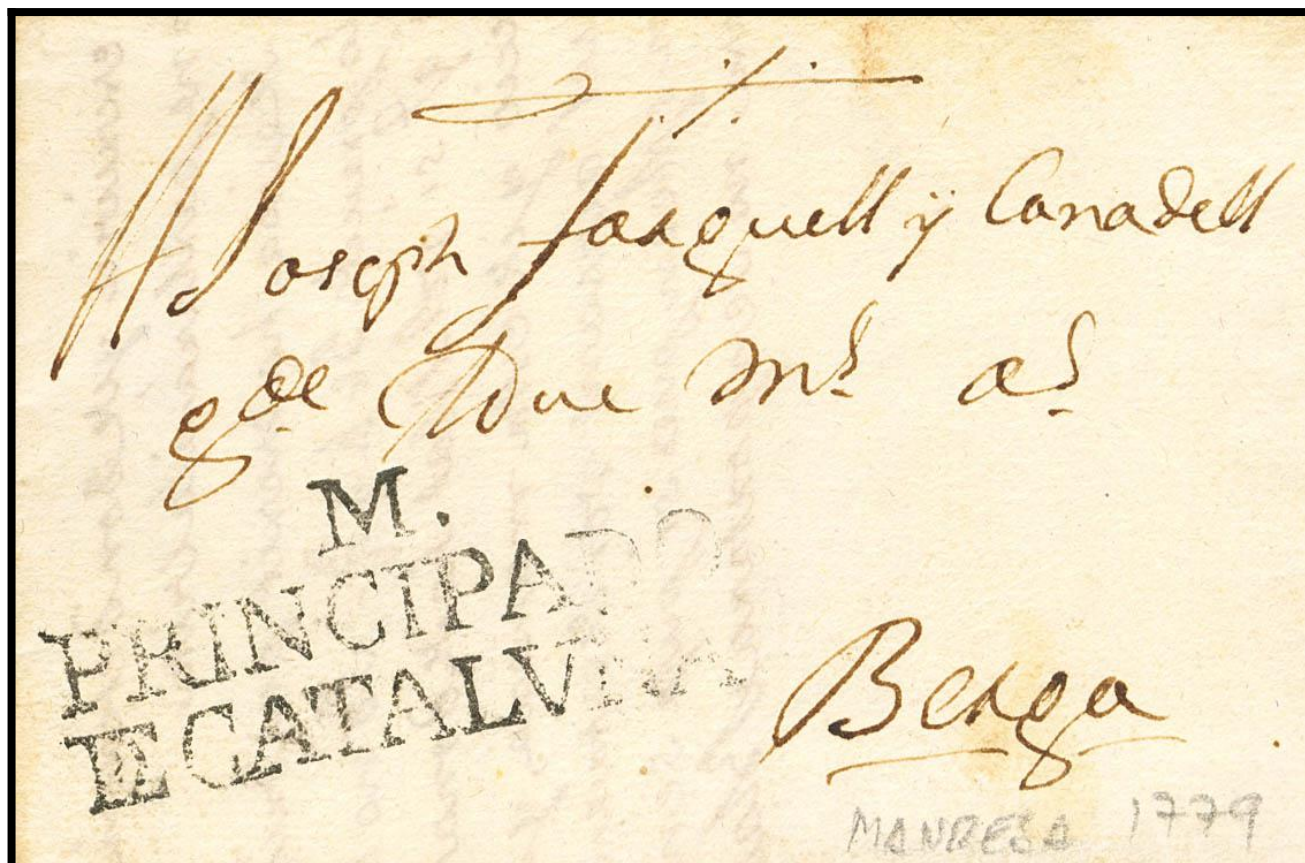 A Joseph Farguell y Canadell
g.de Due m.s a.s
M.
PRINCIPADO
DE CATALVÑA
Berga
MANRESA 1779